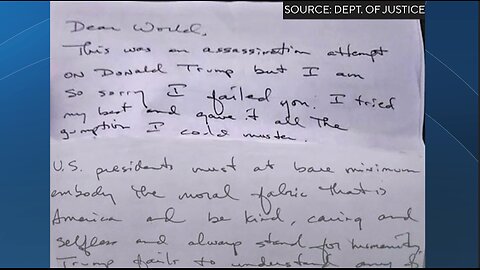 SOURCE: DEPT. OF JUSTICE
Dear World,
This was an assassination attempt
on Donald Trump but I am
so sorry I failed you. I tried
my best and gave it all the
gumption I could muster.
U.S. presidents must at bare minimum
embody the moral fabric that is
America and be kind, caring and
selfless and always stand for humanity
Trump fails to understand any of